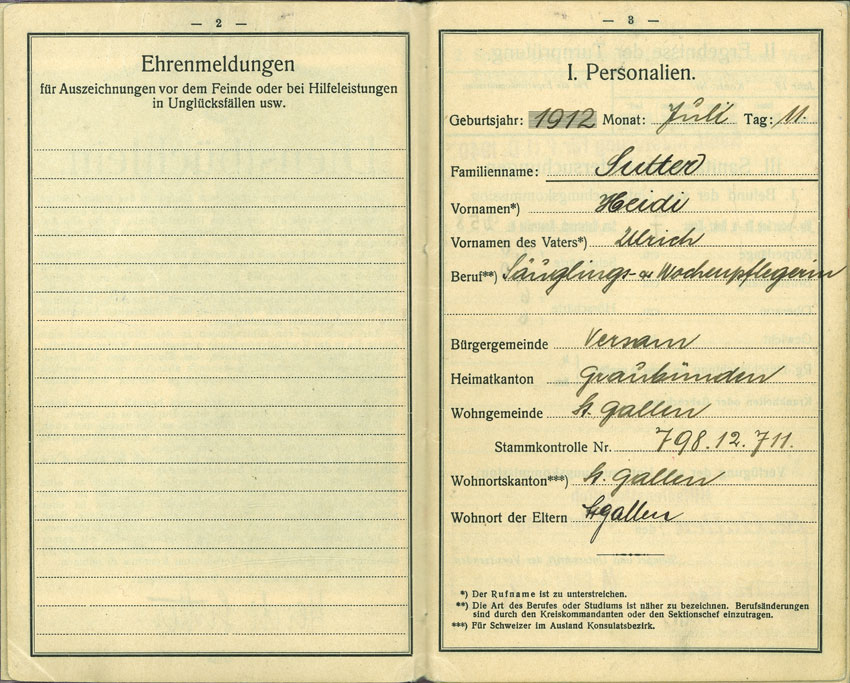 — 2 —
Ehrenmeldungen
für Auszeichnungen vor dem Feinde oder bei Hilfeleistungen
in Unglücksfällen usw.
— 3 —
I. Personalien.
Geburtsjahr: 1912 Monat: Juli Tag: 11.
Familienname: Sutter
Vornamen*) Heidi
Vornamen des Vaters*) Ulrich
Beruf**) Säuglings- & Wochenpflegerin
Bürgergemeinde Versam
Heimatkanton Graubünden
Wohngemeinde St. Gallen
Stammkontrolle Nr. 798.12.711.
Wohnortskanton***) St. Gallen
Wohnort der Eltern St. Gallen
*) Der Rufname ist zu unterstreichen.
**) Die Art des Berufes oder Studiums ist näher zu bezeichnen. Berufsänderungen
sind durch den Kreiskommandanten oder den Sektionschef einzutragen.
***) Für Schweizer im Ausland Konsulatsbezirk.